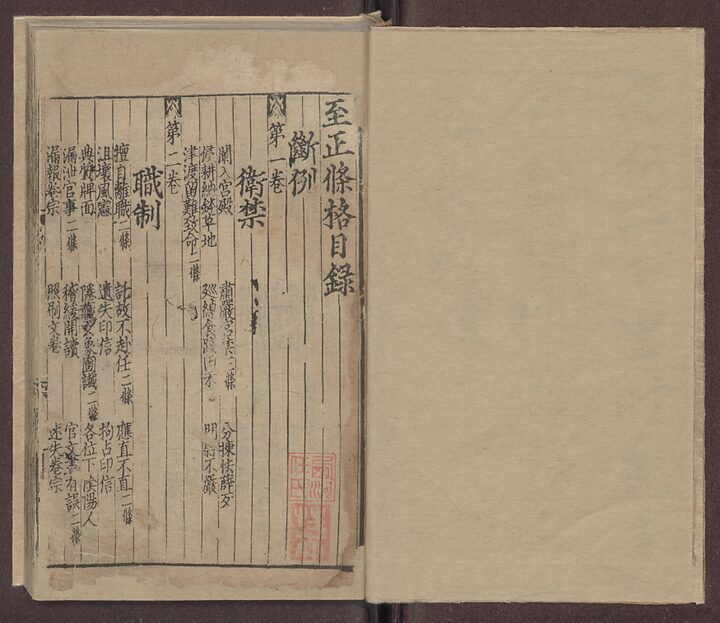 至正條格目録
斷例
第一卷
衛禁
闌入宮殿 肅嚴宮禁三條 分揀怯薛歹
侵耕納鉢草地 巡綽食踐田禾 門禁不嚴
津渡留難致命二條
第二卷
職制
擅自離職二條 託故不赴任二條 應直不直二條
沮壞風憲 遺失印信 拘占印信
典質牌面 隱藏玄象圖讖二條 各位下陰陽人
漏泄官事二條 稽緩開讀 官文書有誤二條
漏報卷宗 照刷文卷 迷失卷宗